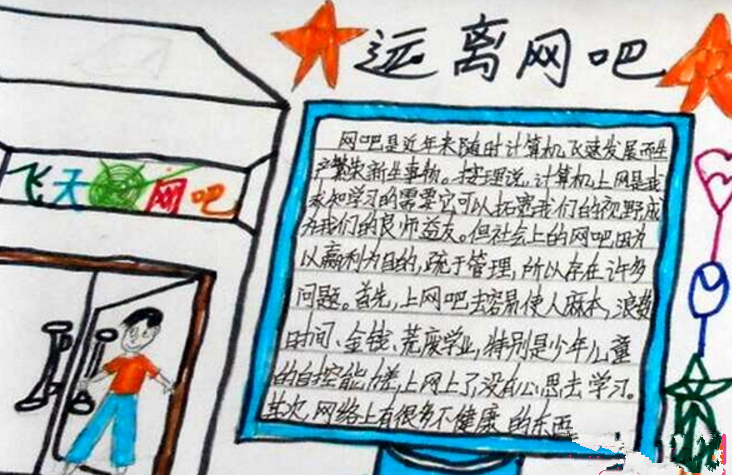 远离网吧
飞天网吧
网吧是近年来随时计算机飞速发展而生
产繁荣新生事物。按理说,计算机上网是我
求知学习的需要它可以拓宽我们的视野成
为我们的良师益友。但社会上的网吧因为
以赢利为目的,疏于管理,所以存在许多
问题。首先,上网吧去容易使人麻木,浪费
时间、金钱、荒废学业,特别是少年儿童
的自控能力差,上网上了,没有心思去学习。
其次,网络上有很多不健康的东西